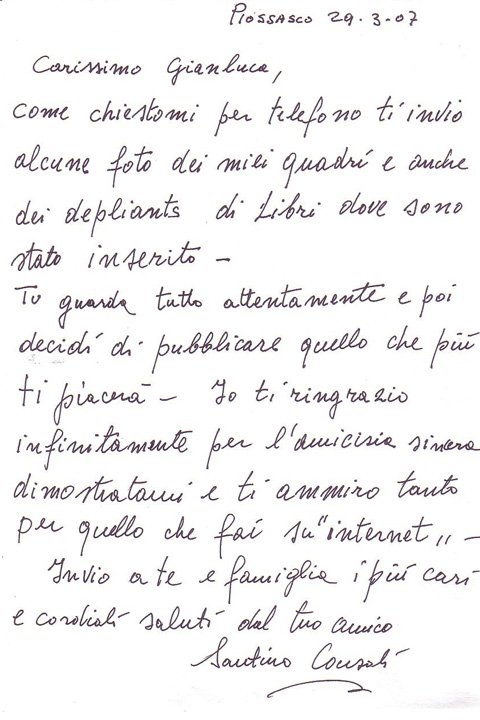 PIOSSASCO 29.3.07
Carissimo Gianluca,
come chiestomi per telefono ti invio
alcune foto dei miei quadri e anche
dei depliants di Libri dove sono
stato inserito –
Tu guarda tutto attentamente e poi
decidi di pubblicare quello che più
ti piacerà – Io ti ringrazio
infinitamente per l'amicisia sincera
dimostratami e ti ammiro tanto
per quello che fai su "internet" –
Invio a te e famiglia i più cari
e cordiali saluti dal tuo amico
Santino